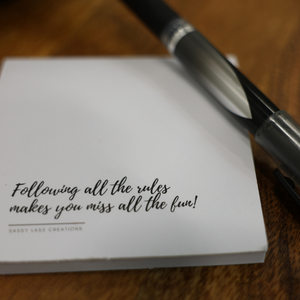 Following all the rules
makes you miss all the fun!
SASSY LADS CREATIONS